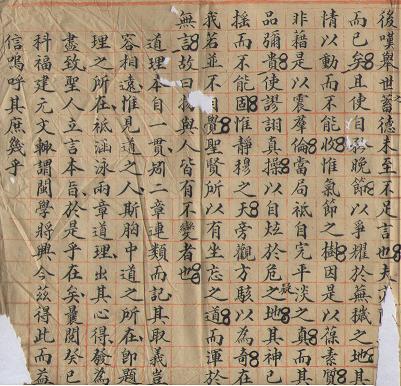 後嘆舉世蓄德未至不足言也夫
而已矣且使自矜晚節以爭耀於無穢之地其
情以動而不能收惟氣節之樹因是以葆素
非藉是以震羣倫當局祗自完平淡之真而其
品彌貴使謬詡真操以自炫於危疑之地其神已
搖而不能固惟靜穆之天旁觀方駭以為奇在
我若並不自覺聖賢所以有坐忘之道而渾於
無言故曰我與人皆有不變者也
道理本自一貫周二章連類而記其取義豈
容相遠惟見道之人斯胸中道之所在即題
理之所在祗涵泳兩章道理出其心得發為
盡致聖人立言本旨於是乎在矣量閱癸巳
科福建元文輙謂閩學將興今茲得此而益
信嗚呼其庶幾乎